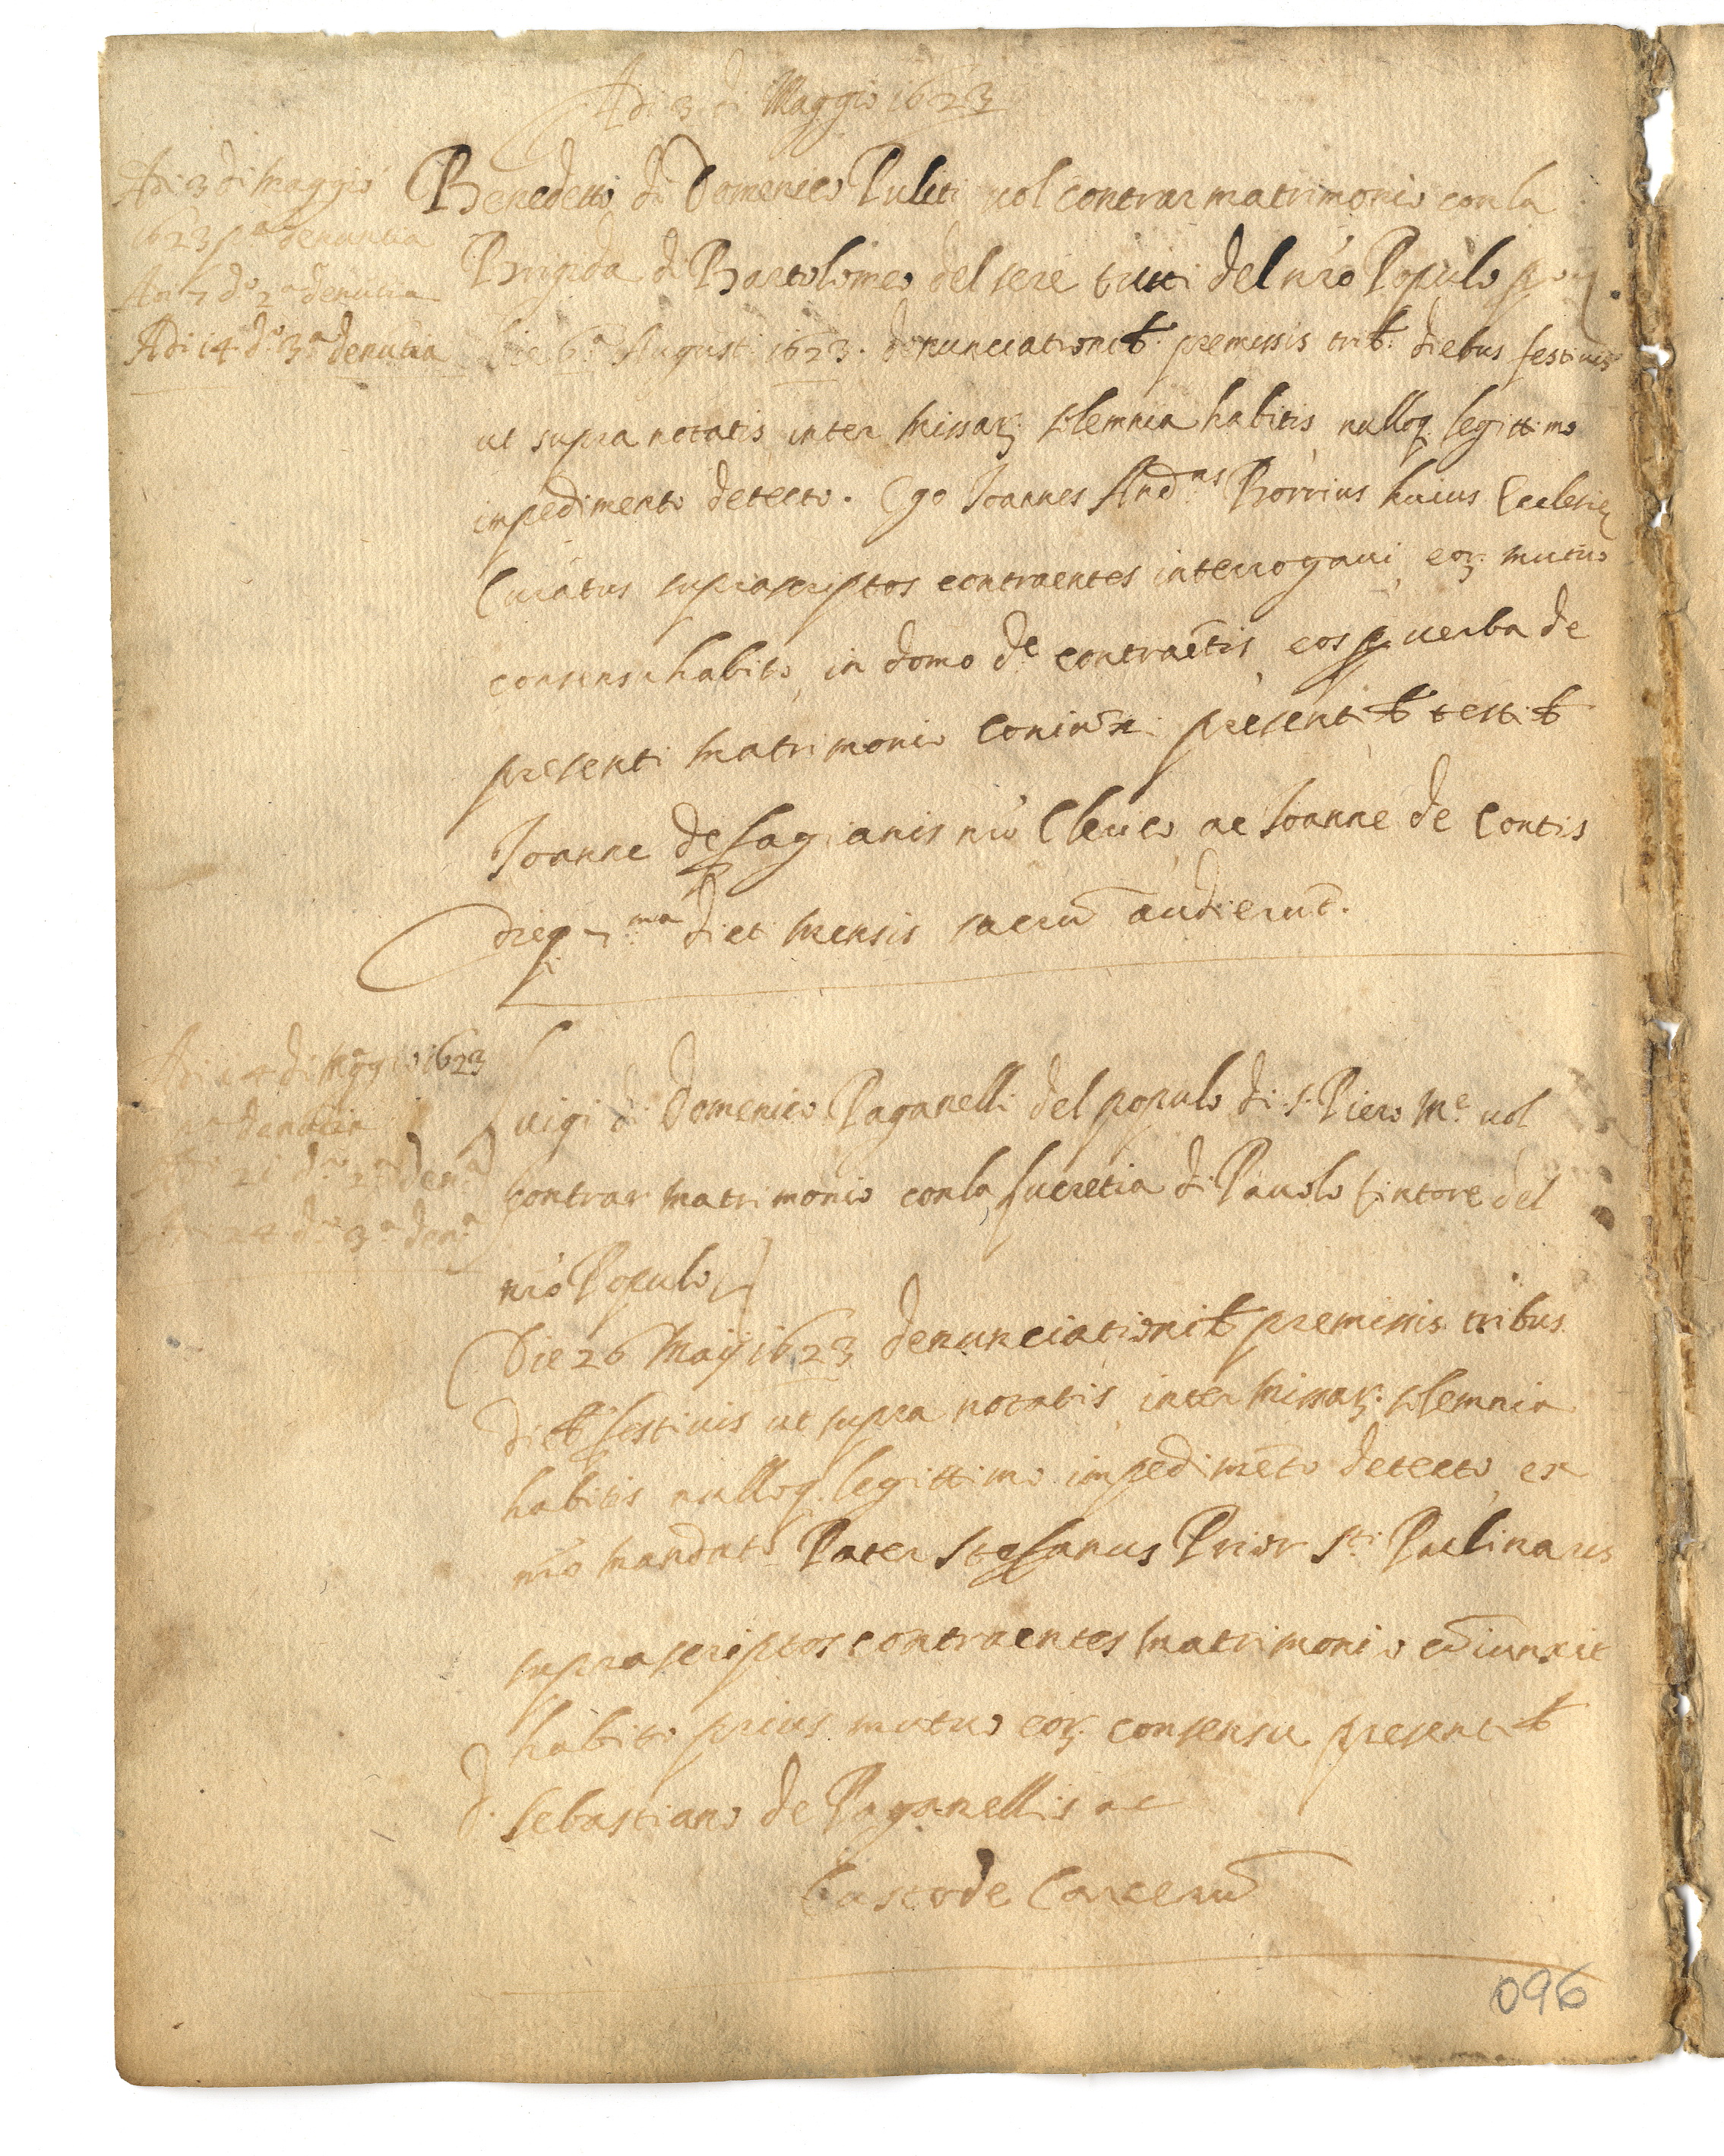 Adi 3 di Maggio 1623
Adi 3 di Maggio
1623 pa denuntia
Adi 7 do 2a denutia
Adi 14 do 3a denutia
Benedetto di Domenico Puliti vol contrar matrimonio con la
Brigida di Bartolomeo del sere tutti del nro Populo
Die 6a Augusti 1623. denunciationib: premissis trib: diebus festivis
ut supra notatis inter missarz solemnia habitis nulloq legittimo
impedimento detecto. Ego Joannes Andas Borrius huius Ecclesie
Curatus suprascriptos contraentes interrogaui, eorz mutuo
consensu habito, in domo de contraetis, eos p uerba de
presenti matrimonio coniuxi presentib testib
Joanne de fagianis nro Clerico ac Joanne de Contis
dieq 7ma diet mensis sacru audierut.
Adi 14 di Maggio 1623
pa denutia
Adi 21 do 2a dena
Adi 24 do 3a dena
Luigi di Domenico Paganelli del populo di S. Piero Me vol
contrar matrimonio con la Lucretia di Pauolo tintore del
nro Populo
Die 26 Maij 1623 denunciationib premissis tribus
dieb festiuis ut supra notatis, inter missarz solemnia
habitis nulloq legittimo impedimeto detecto, ex
nro mandato Pater Stefanus Prior Sti Paulinaris
suprascriptos contraentes matrimonio coiunxit
habito prius mutuo eorz consensu presentib
d. Sebastiano de Paganellis ac
Custode Carceru
096